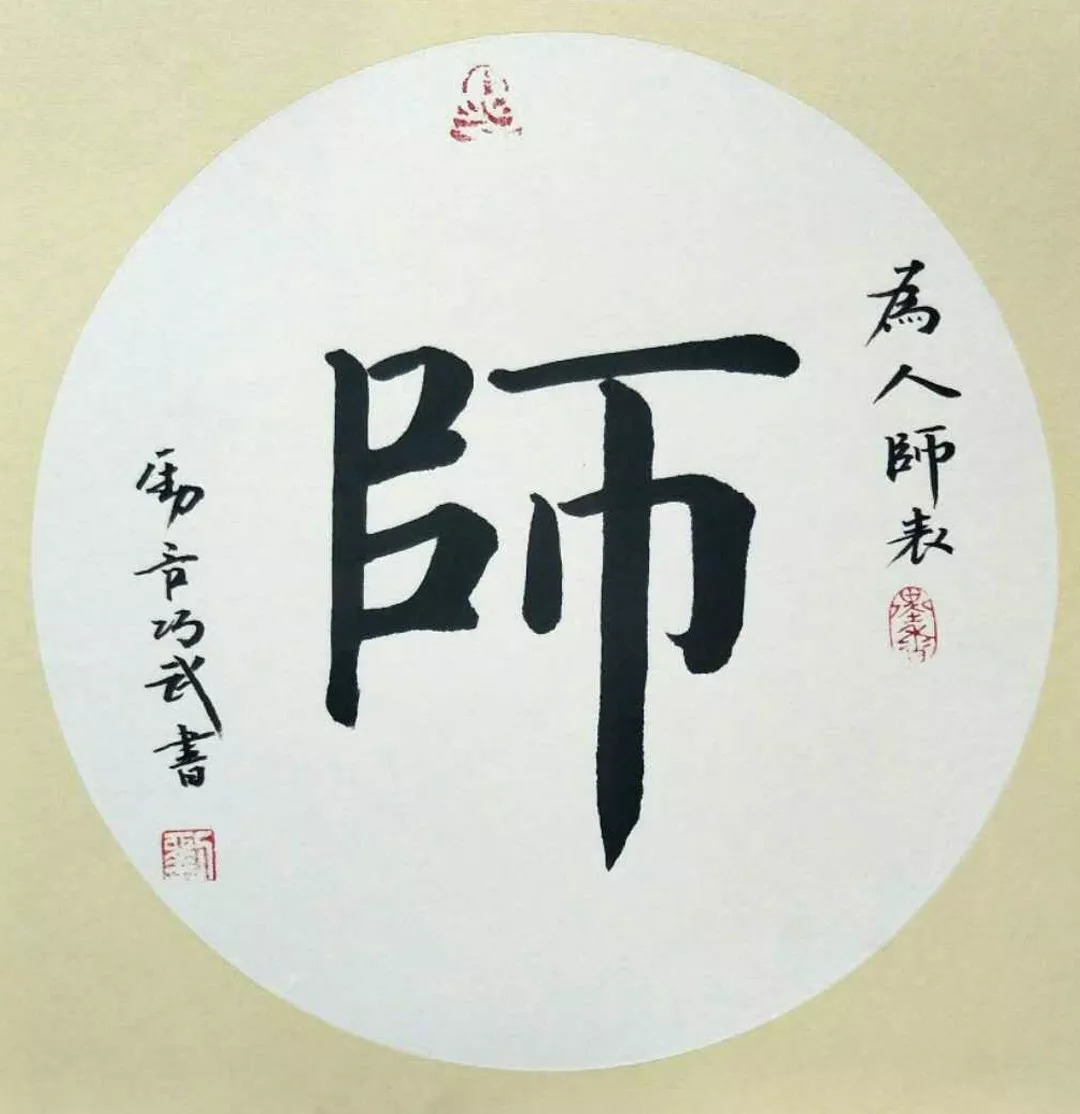 為人師表
師
巧武書